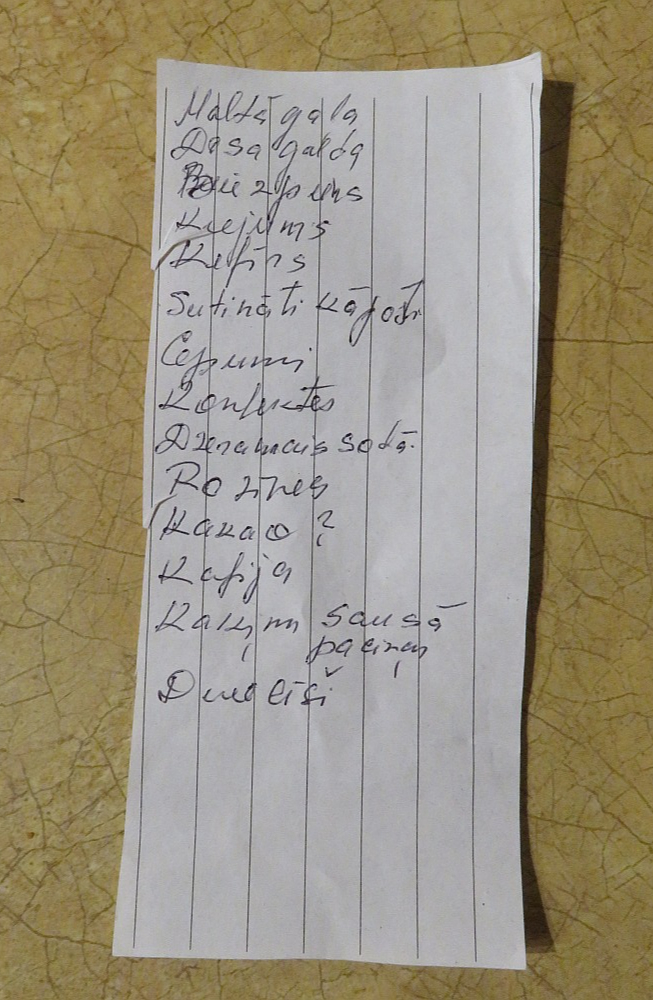 Maltā gaļa
Desa galda
Biezpiens
Krējums
Kefīrs
Sutināti kāposti
Cepumi
Konfektes
Dzeramais soda
Rozīnes
Kakao ?
Kafija
Kaķim sausā
paciņa
Dvielīši